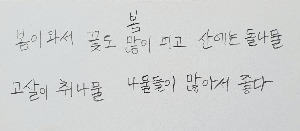 봄
봄이 와서 꽃도 많이 피고 산에는 돌나물
고살이 취나물 나물들이 많아서 좋다